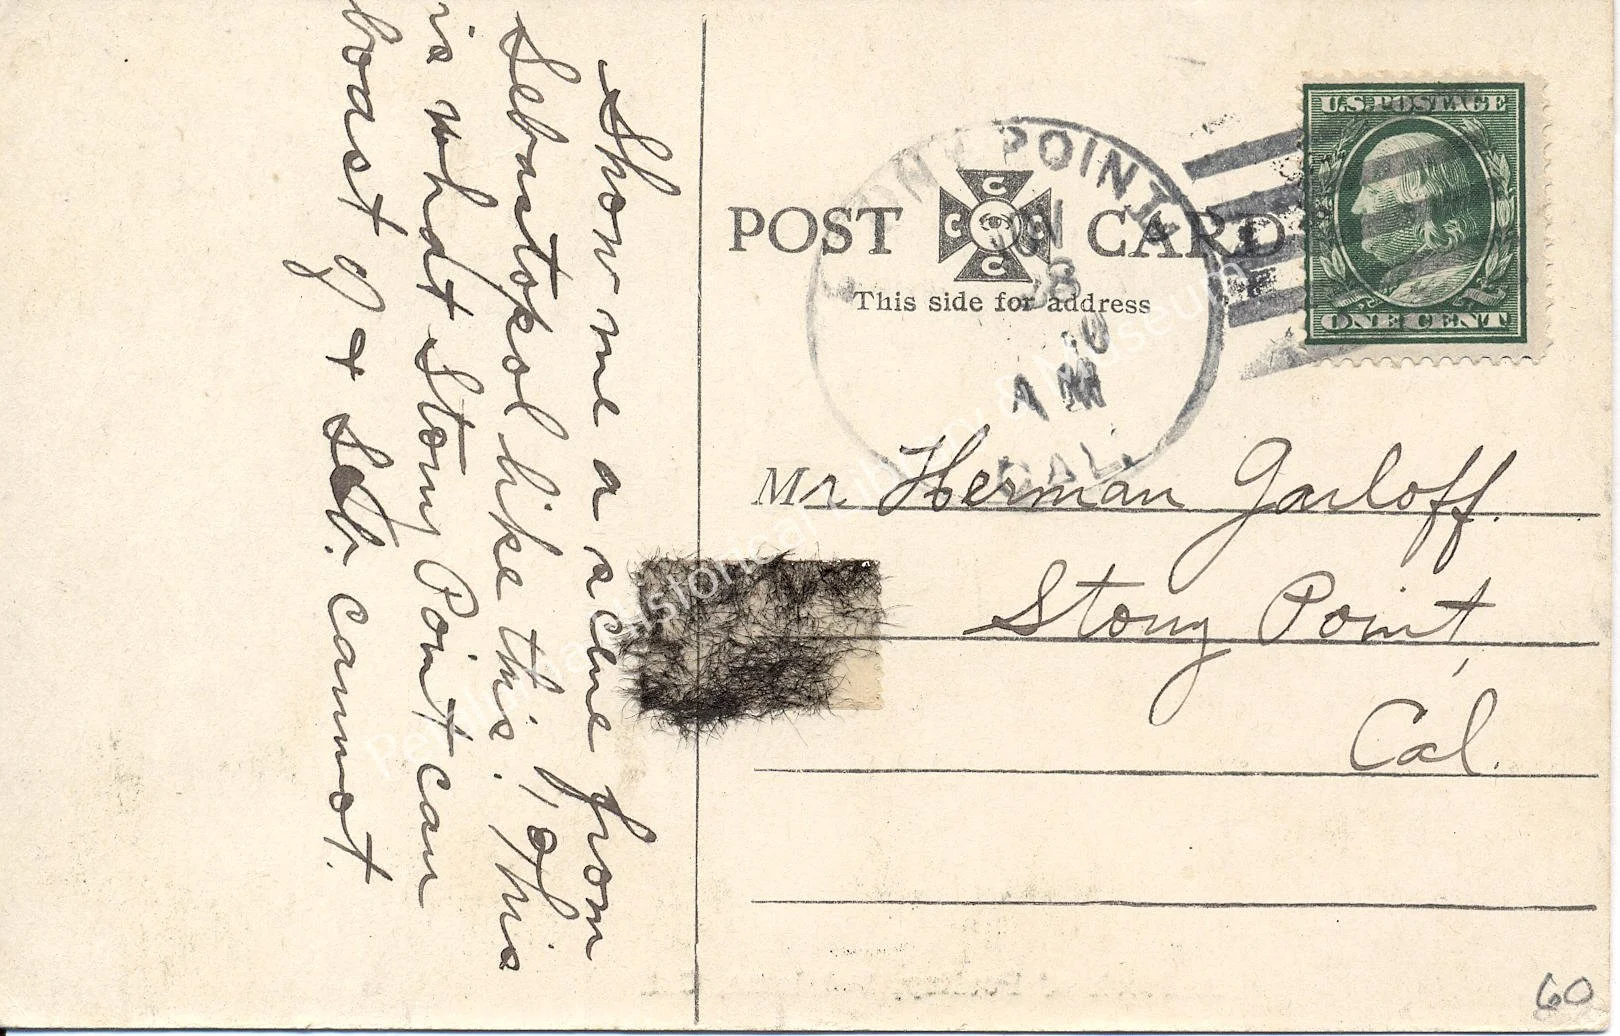 Show me a acene from
Sebastopol like this. This
is what Stony Point can
boast of & Seb. cannot.
STONY POINT
JUN
8
10
AM
CAL.
U.S. POSTAGE
ONE CENT
POST CARD
C C C C
This side for address
Mr Herman Garloff.
Stony Point,
Cal.
60
Petaluma Historical Library & Museum